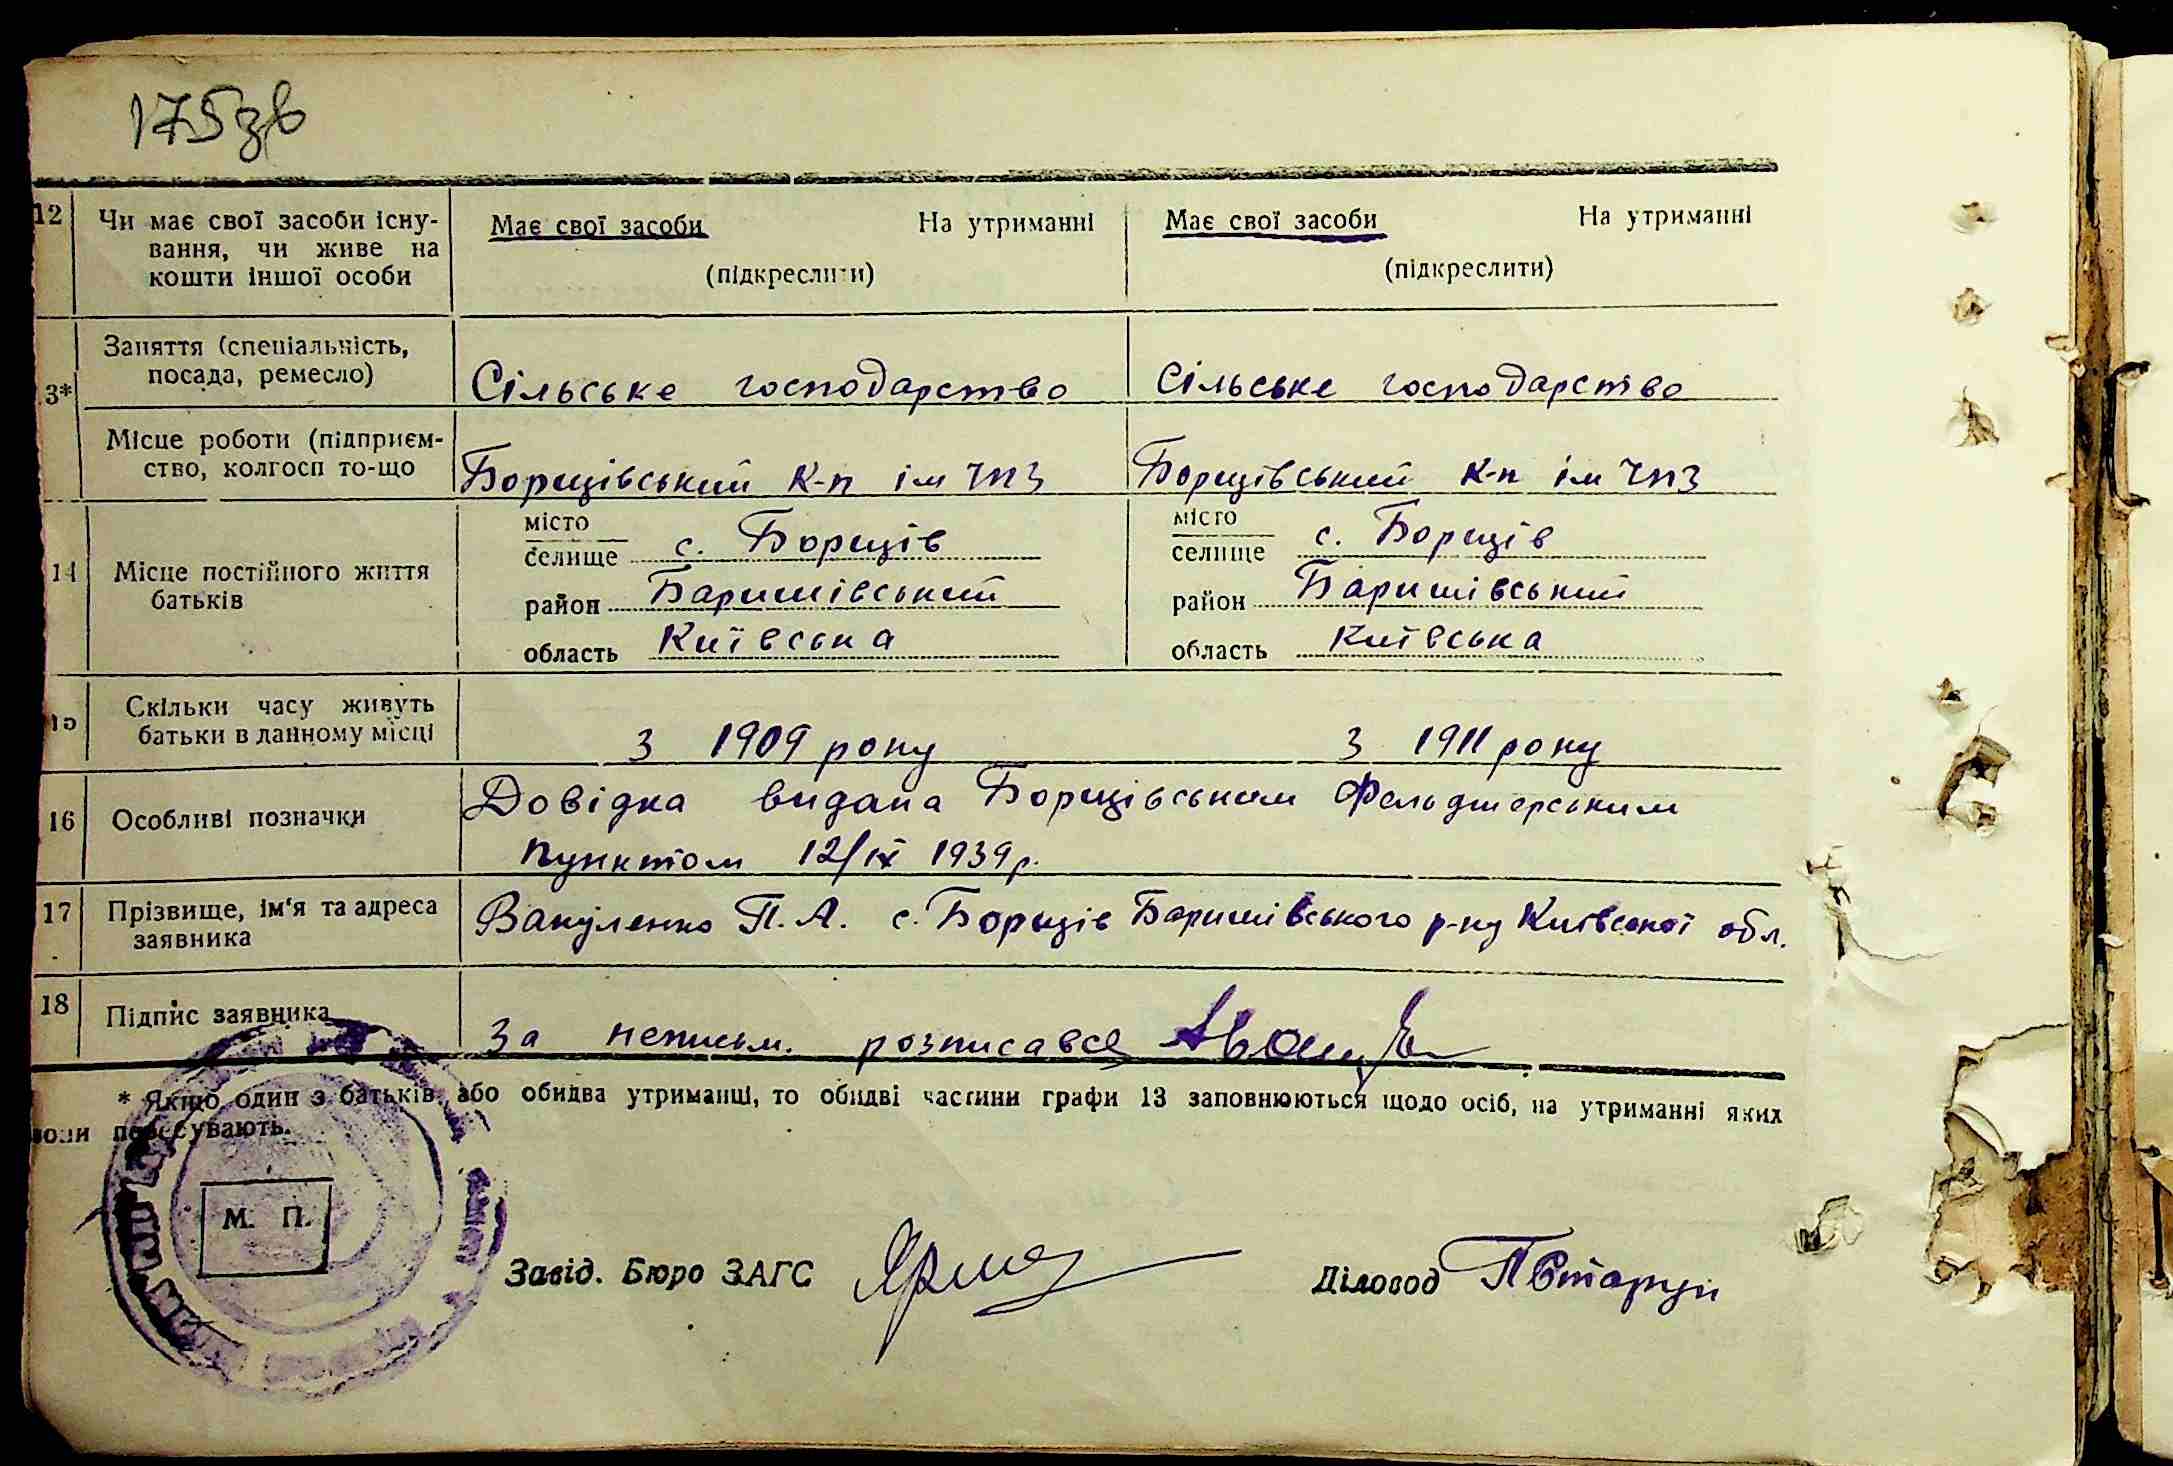 175зв
12 Чи має свої засоби існу- Має свої засоби На утриманні Має свої засоби На утриманні
вання, чи живе на
кошти іншої особи (підкреслити) (підкреслити)
Заняття (спеціальність,
посада, ремесло) Сільське господарство Сільське господарство
3*
Місце роботи (підприєм-
ство, колгосп то-що Борщівський к-п ім ЧПЗ Борщівський к-п ім ЧПЗ
місто місто
селище с. Борщів селище с. Борщів
14 Місце постійного життя
батьків район Баришівський район Баришівський
область Київська область Київська
15 Скільки часу живуть
батьки в данному місці з 1909 року з 1911 року
16 Особливі позначки Довідка видана Борщівським Фельдшерським
пунктом 12/ІХ 1939р.
17 Прізвище, ім'я та адреса
заявника Вакуленко П. А. с. Борщів Баришівського р-ну Київської обл.
18 Підпис заявника За неписьм. розписався
* Якщо один з батьків, або обидва утриманці, то обидві частини графи 13 заповнюються щодо осіб, на утриманні яких
вони перебувають.
М. П.
Завід. Бюро ЗАГС Діловод